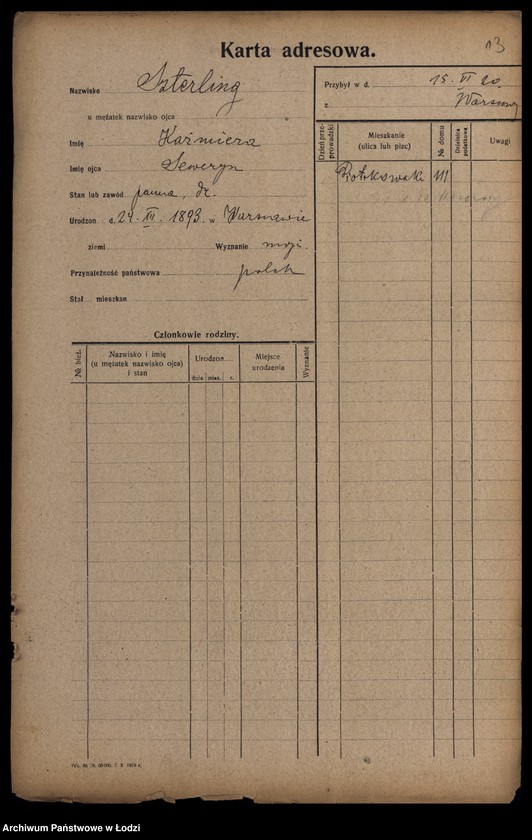 Karta adresowa.
13
Nazwisko Szterling
u mężatek nazwisko ojca
Imię Kaźmiera
Imię ojca Seweryn
Stan lub zawód panna, dr.
Urodzon d. 24. III. 1893 w Warszawie
ziemi Wyznanie mojż.
Przynależność państwowa polsk
Stał mieszkan
Przybył w d. 15. VI 20.
z Warszawy
Dzień przeprowadzki
Mieszkanie
(ulica lub plac)
№ domu
Dzielnica podatkowa
Uwagi
Piotrkowska 111
Członkowie rodziny.
№ bież.
Nazwisko i imię
(u mężatek nazwisko ojca)
i stan
Urodzon
dnia mies. r.
Miejsce
urodzenia
Wyznanie
Archiwum Państwowe w Łodzi